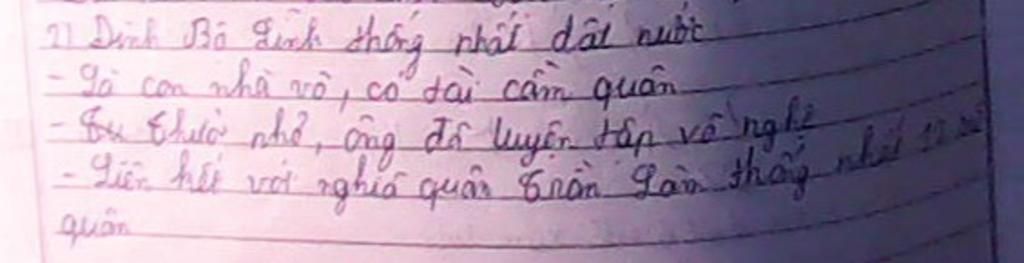 2) Đinh Bộ Lĩnh thống nhất đất nước
- Là con nhà võ, có tài cầm quân
- Từ thuở nhỏ, ông đã luyện tập võ nghệ
- Liên kết với nghĩa quân Trần Lãm thống nhất 12 sứ
quân